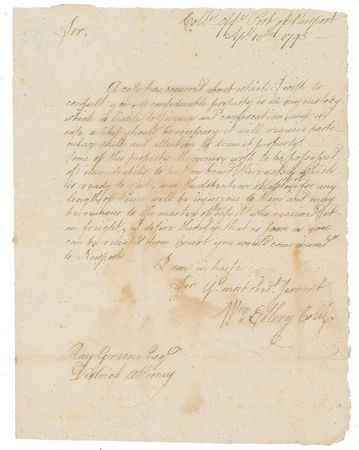 Coll.s off.e Port of Newport
Sep. 10th 1795
Sir,
A case has occurred about which I wish to
consult you. A considerable property is in my custody
which is liable to seizure and confiscation, and in
case a libel should be necessary it will require parti-
cular skill and attention to draw it properly.
Some of this property the owners wish to be possessed
of immediately to put on board their vessel which
is ready to sail, and the detention of for any
length of time will be injurious to them and may
be ruinous to the master of who received it
on freight. I desire therefore that as soon as you
can be released from Court you would come immedy.
to Newport
I am in haste
Sir Yr. most obedt. servant
Wm Ellery Collr
Ray Greene Esqr.
District Attorney